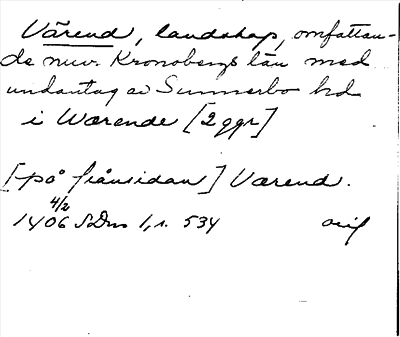 Värend, landskap, omfattan-
de nuv. Kronobergs län med
undantag av Sunnerbo hd.
i Wærende [2 ggr]
[på frånsidan] Værend.
4/2
1406 SDns 1, s. 534 orig